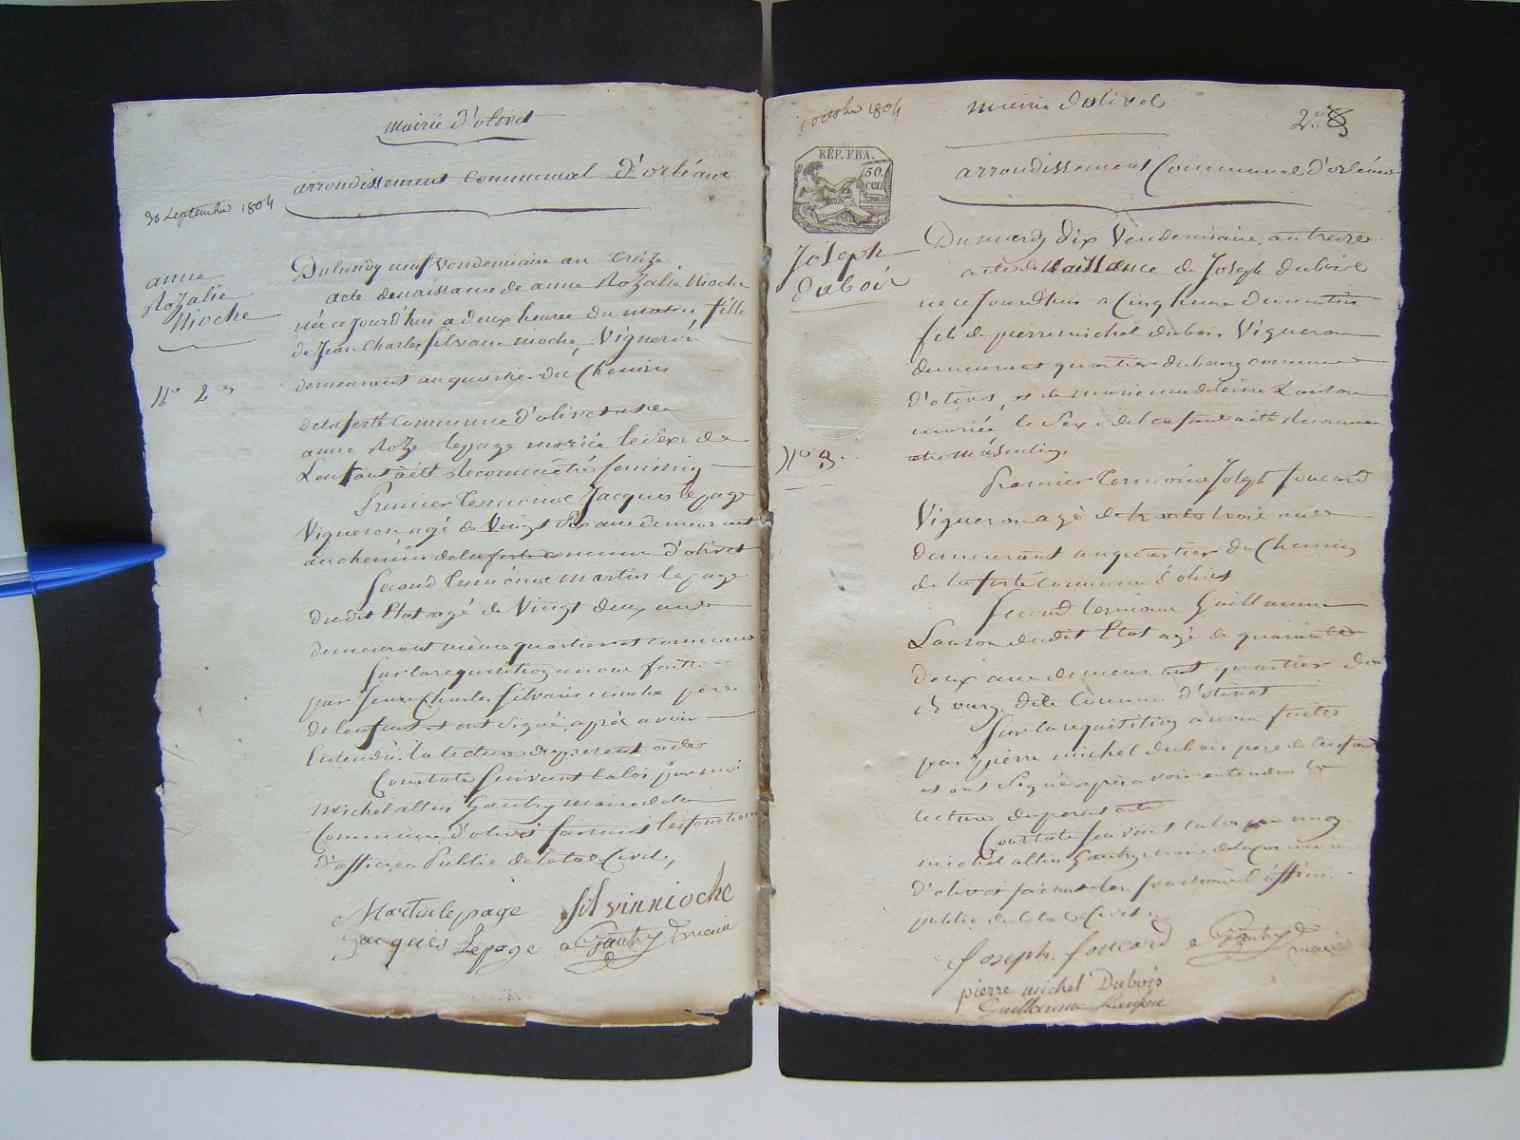 mairie d'olivet
arrondissement communal d'orléans
30 septembre 1804
anne
Rozalie
Nioche
No 2
Du lundy neuf vendemiaire an treize
acte denaissance de anne Rozalie Nioche
née cejourd'hui a deux heures du matin fille
de Jean Charles silvain nioche, Vigneron
demeurant au quartier du Chemin
delaferté Commune d'olivet et de
anne Roze lepage mariée le sexe de
Lenfant a été Reconnu être feminin
Premier temoins Jacques lepage
Vigneron agé de Vingt six ans demeurant
au chemin de la ferté commune d'olivet
Second temoins martin lepage
dudit Etat agé de Vingt deux ans
demeurant même quartier et commune
Sur la requisition a nous faite
par Jean Charles Silvain nioche pere
de lenfant et ont signé après avoir
Entendu la lecture du present acte
Constaté suivant la loi par moi
michel altin Gautry maire de la
Commune d'olivet faisant les fonctions
d'officier Public de l'etat Civil,
Martin lepage silvin nioche
Jacques Lepage a Gautry maire
octobre 1804
mairie d'olivet
2
REP. FRA.
50.
CEN.
arrondissement Communal d'orléans
Joseph
duboi
No 3.
Du mardy dix Vendemiaire an treize
acte de Naissance de Joseph duboi
né ce Jourdhui a Cinq heure du matin
fils de pierre michel dubois Vigneron
demeurant quartier du bourg commune
d'olivet, et de marie madeleine Lauson
mariée le Sexe de lenfant a été Reconnu
etre masculin
Premier temoins Joseph foucard
Vigneron agé de trente trois ans
demeurant au quartier du Chemin
de la ferté Commune d'olivet
Second temoins Guillaume
Lauson dudit Etat agé de quarante
deux ans demeurant quartier du
bourg dite Commune d'olivet
Sur la requisition a nous faites
par pierre michel dubois pere de lenfant
et ont signé après avoir entendu la
lecture du present acte
Constaté suivant la loi par moy
michel altin Gautry maire de la Commune
d'olivet faisant les fonctions d'officier
public de l'etat Civil.
Joseph foucard a Gautry maire
pierre michel Dubois
Guillaume